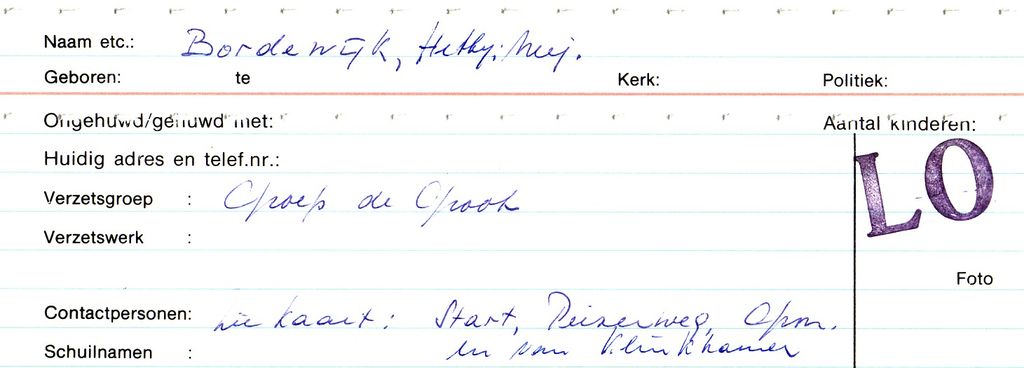 Naam etc.: Bordewijk, Hetty; Mej.
Geboren: te Kerk: Politiek:
Ongehuwd/gehuwd met: Aantal kinderen:
Huidig adres en telef.nr.:
LO
Verzetsgroep : Groep de Groot
Verzetswerk :
Foto
Contactpersonen: zie kaart: Start, Peizerweg, Gron.
Schuilnamen : en van Klinkhamer